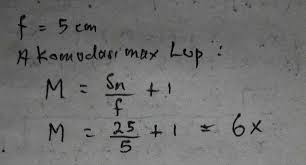 f = 5 cm
Akomodasi max Lup :
M = Sn/f + 1
M = 25/5 + 1 = 6x